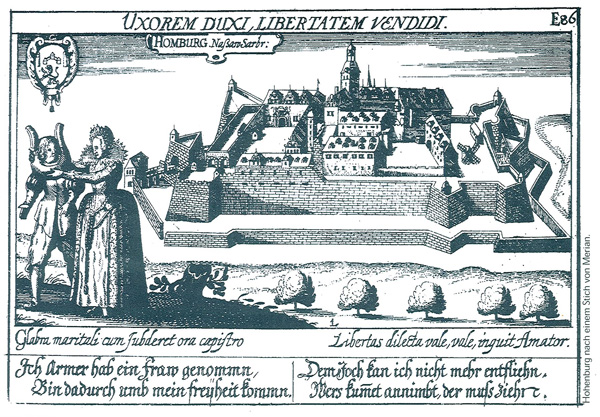 UXOREM DUXI, LIBERTATEM VENDIDI.
E86
HOMBURG. Naßaw-Sarbr:
Glabra maritali cum subderet ora capistro
Libertas dilecta vale, vale, inquit Amator.
Ich Armer hab ein fraw genommn,
Bin dadurch umb mein freyheit kommn.
Dem Joch kan ich nicht mehr entfliehn,
Wers kumet annimbt, der muß
Hohenburg nach einem Sich von Merian.